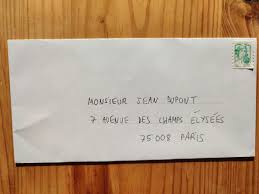 MONSIEUR JEAN DUPONT
7 AVENUE DES CHAMPS ELYSÉES
75008 PARIS